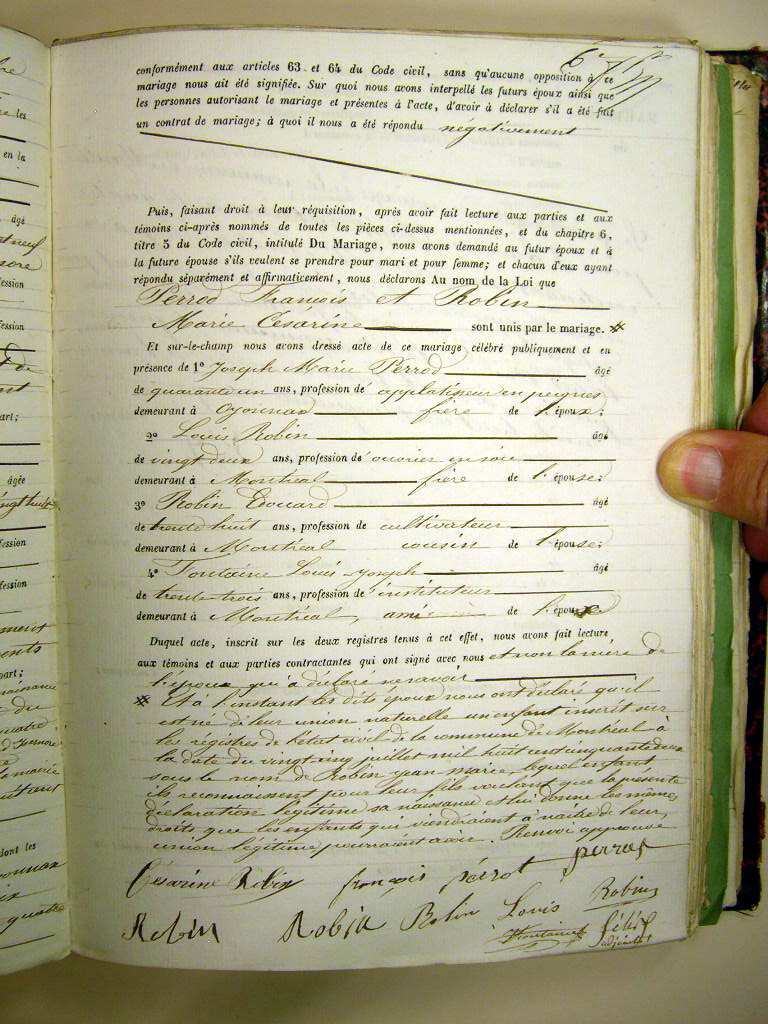 conformément aux articles 63 et 64 du Code civil, sans qu'aucune opposition à ce
mariage nous ait été signifiée. Sur quoi nous avons interpellé les futurs époux ainsi que
les personnes autorisant le mariage et présentes à l'acte, d'avoir à déclarer s'il a été fait
un contrat de mariage; à quoi il nous a été répondu négativement
Puis, faisant droit à leur réquisition, après avoir fait lecture aux parties et aux
témoins ci-après nommés de toutes les pièces ci-dessus mentionnées, et du chapitre 6,
titre 5 du Code civil, intitulé Du Mariage, nous avons demandé au futur époux et à
la future épouse s'ils veulent se prendre pour mari et pour femme; et chacun d'eux ayant
répondu séparément et affirmaticement, nous déclarons Au nom de la Loi que
Perrod François et Robin
Marie Césarine sont unis par le mariage. #
Et sur-le-champ nous avons dressé acte de ce mariage célébré publiquement et en
présence de 1º Joseph Marie Perrod âgé
de quarante un ans, profession de applatisseur en peignes
demeurant à Oyonnax frère de l'époux;
2º Louis Robin âgé
de vingt deux ans, profession de ouvrier en soie
demeurant à Montréal frère de l'épouse;
3º Robin Edouard âgé
de trente huit ans, profession de cultivateur
demeurant à Montréal cousin de l'épouse;
4º Fontaine Louis Joseph âgé
de trente trois ans, profession de instituteur
demeurant à Montréal, ami de l'épouxe
Duquel acte, inscrit sur les deux registres tenus à cet effet, nous avons fait lecture
aux témoins et aux parties contractantes qui ont signé avec nous et non la mère de
l'époux qui a déclaré ne savoir
# Et à l'instant les dits époux nous ont déclaré qu'il
est né de leur union naturelle un enfant inscrit sur
les régistres de l'état civil de la commune de Montréal à
la date du vingt cinq juillet mil huit cent cinquante deux
sous le nom de Robin Jean Marie, lequel enfant
ils reconnaissent pour leur fils voulant que la présente
déclaration légitime sa naissance et lui donne les mêmes
droits que les enfants qui viendraient à naître de leur
union légitime pourraient avoir. Renvoi approuvé
Césarine Robin françois pérrot perrod
Robin Robin Robin Louis Robin
Fontaine félix
adjoint